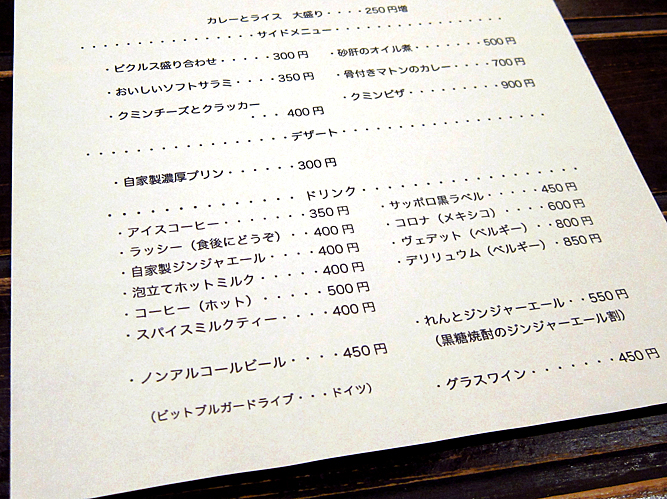 カレーとライス 大盛り・・・・250円増
・・・・・・・・・・・・・・・・サイドメニュー・・・・・・・・・・・・・・・・
・ピクルス盛り合わせ・・・・・300円
・おいしいソフトサラミ・・・・350円
・クミンチーズとクラッカー
・・・400円
・砂肝のオイル煮・・・・・・・500円
・骨付きマトンのカレー・・・・700円
・クミンピザ・・・・・・・・・900円
・・・・・・・・・・・・・・・・・デザート・・・・・・・・・・・・・・・・・
・自家製濃厚プリン・・・・・・・300円
・・・・・・・・・・・・・・ドリンク・・・・・・・・・・・・・・・・
・アイスコーヒー・・・・・・・350円
・ラッシー（食後にどうぞ）・・400円
・自家製ジンジャエール・・・・400円
・泡立てホットミルク・・・・・400円
・コーヒー（ホット）・・・・・500円
・スパイスミルクティー・・・・400円
・ノンアルコールビール・・・・450円
（ビットブルガードライブ・・・ドイツ）
・サッポロ黒ラベル・・・・・・450円
・コロナ（メキシコ）・・・・・600円
・ヴェデット（ベルギー）・・・800円
・デリリュウム（ベルギー）・・850円
・れんとジンジャーエール・・550円
（黒糖焼酎のジンジャーエール割）
・グラスワイン・・・・・・・450円